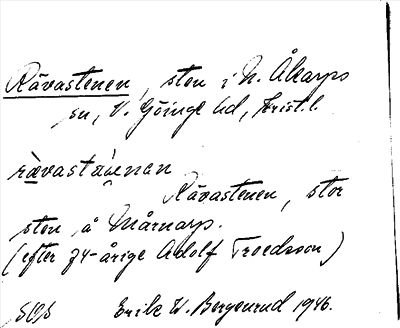 Rävastenen, sten i N. Åkarps
sn, V. Göinge hd, Krist. l.
rävastäinen
Rävastenen, stor
sten å Mårnarp.
(efter 74-årige Adolf Troedsson)
Erik W. Bergenrud 1946.